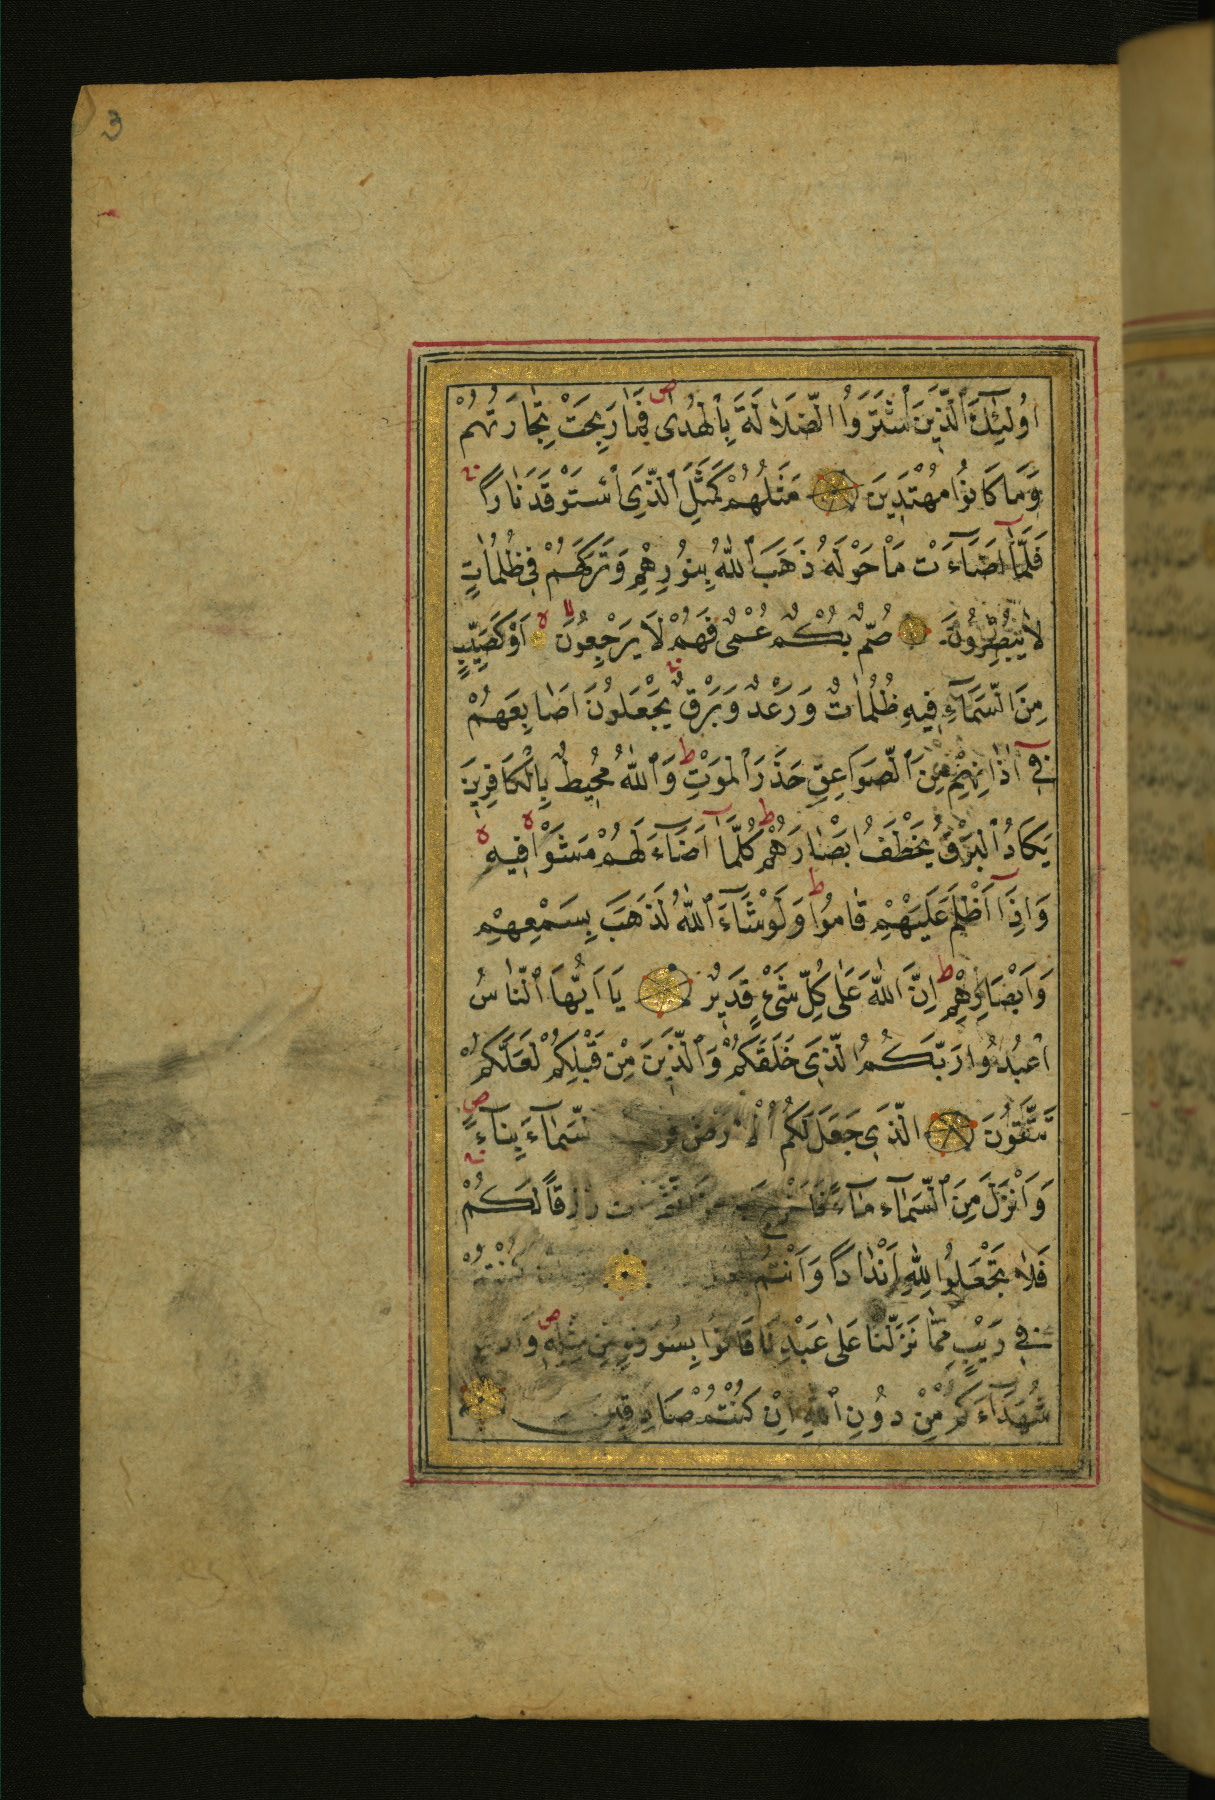 3
اُولٰئِكَ ٱلَّذِينَ ٱشْتَرَوُا الضَّلَالَةَ بِٱلْهُدٰى ص فَمَا رَبِحَتْ تِجَارَتُهُمْ
وَمَا كَانُوا مُهْتَدِينَ مَثَلُهُمْ كَمَثَلِ ٱلَّذِى ٱسْتَوْقَدَ نَارًا
فَلَمَّآ اَضَآءَتْ مَا حَوْلَهُ ذَهَبَ ٱللّٰهُ بِنُورِهِمْ وَتَرَكَهُمْ فِى ظُلُمَاتٍ
لَا يُبْصِرُونَ صُمٌّ بُكْمٌ عُمْىٌ فَهُمْ لَا يَرْجِعُونَ لا ه اَوْ كَصَيِّبٍ
مِنَ السَّمَآءِ فِيهِ ظُلُمَاتٌ وَرَعْدٌ وَبَرْقٌ يَجْعَلُونَ اَصَابِعَهُمْ
فِىٓ اٰذَانِهِمْ مِنَ ٱلصَّوَاعِقِ حَذَرَ ٱلْمَوْتِ ط وَٱللّٰهُ مُحِيطٌ بِالْكَافِرِينَ
يَكَادُ ٱلْبَرْقُ يَخْطَفُ ابْصَارَهُمْ ط كُلَّمَآ اَضَآءَ لَهُمْ مَشَوْا فِيهِ ه
وَاِذَآ اَظْلَمَ عَلَيْهِمْ قَامُوا ط وَلَوْ شَآءَ ٱللّٰهُ لَذَهَبَ بِسَمْعِهِمْ
وَاَبْصَارِهِمْ ط اِنَّ ٱللّٰهَ عَلٰى كُلِّ شَىْءٍ قَدِيرٌ يَا اَيُّهَا ٱلنَّاسُ
ٱعْبُدُوا رَبَّكُمُ الَّذِى خَلَقَكُمْ وَٱلَّذِينَ مِنْ قَبْلِكُمْ لَعَلَّكُمْ
تَتَّقُونَ الَّذِى جَعَلَ لَكُمُ ٱلْاَرْضَ السَّمَآءَ بِنَآءً ص
وَاَنْزَلَ مِنَ ٱلسَّمَآءِ مَآءً فَاَخْرَجَ رِزْقًا لَكُمْ
فَلَا تَجْعَلُوا لِلّٰهِ اَنْدَادًا وَاَنْتُمْ كُنْتُمْ
فِى رَيْبٍ مِمَّا نَزَّلْنَا عَلٰى عَبْدِنَا فَاْتُوا بِسُورَةٍ مِنْ مِثْلِهِ ص
شُهَدَآءَكُمْ مِنْ دُونِ ٱللّٰهِ اِنْ كُنْتُمْ صَادِقِينَ